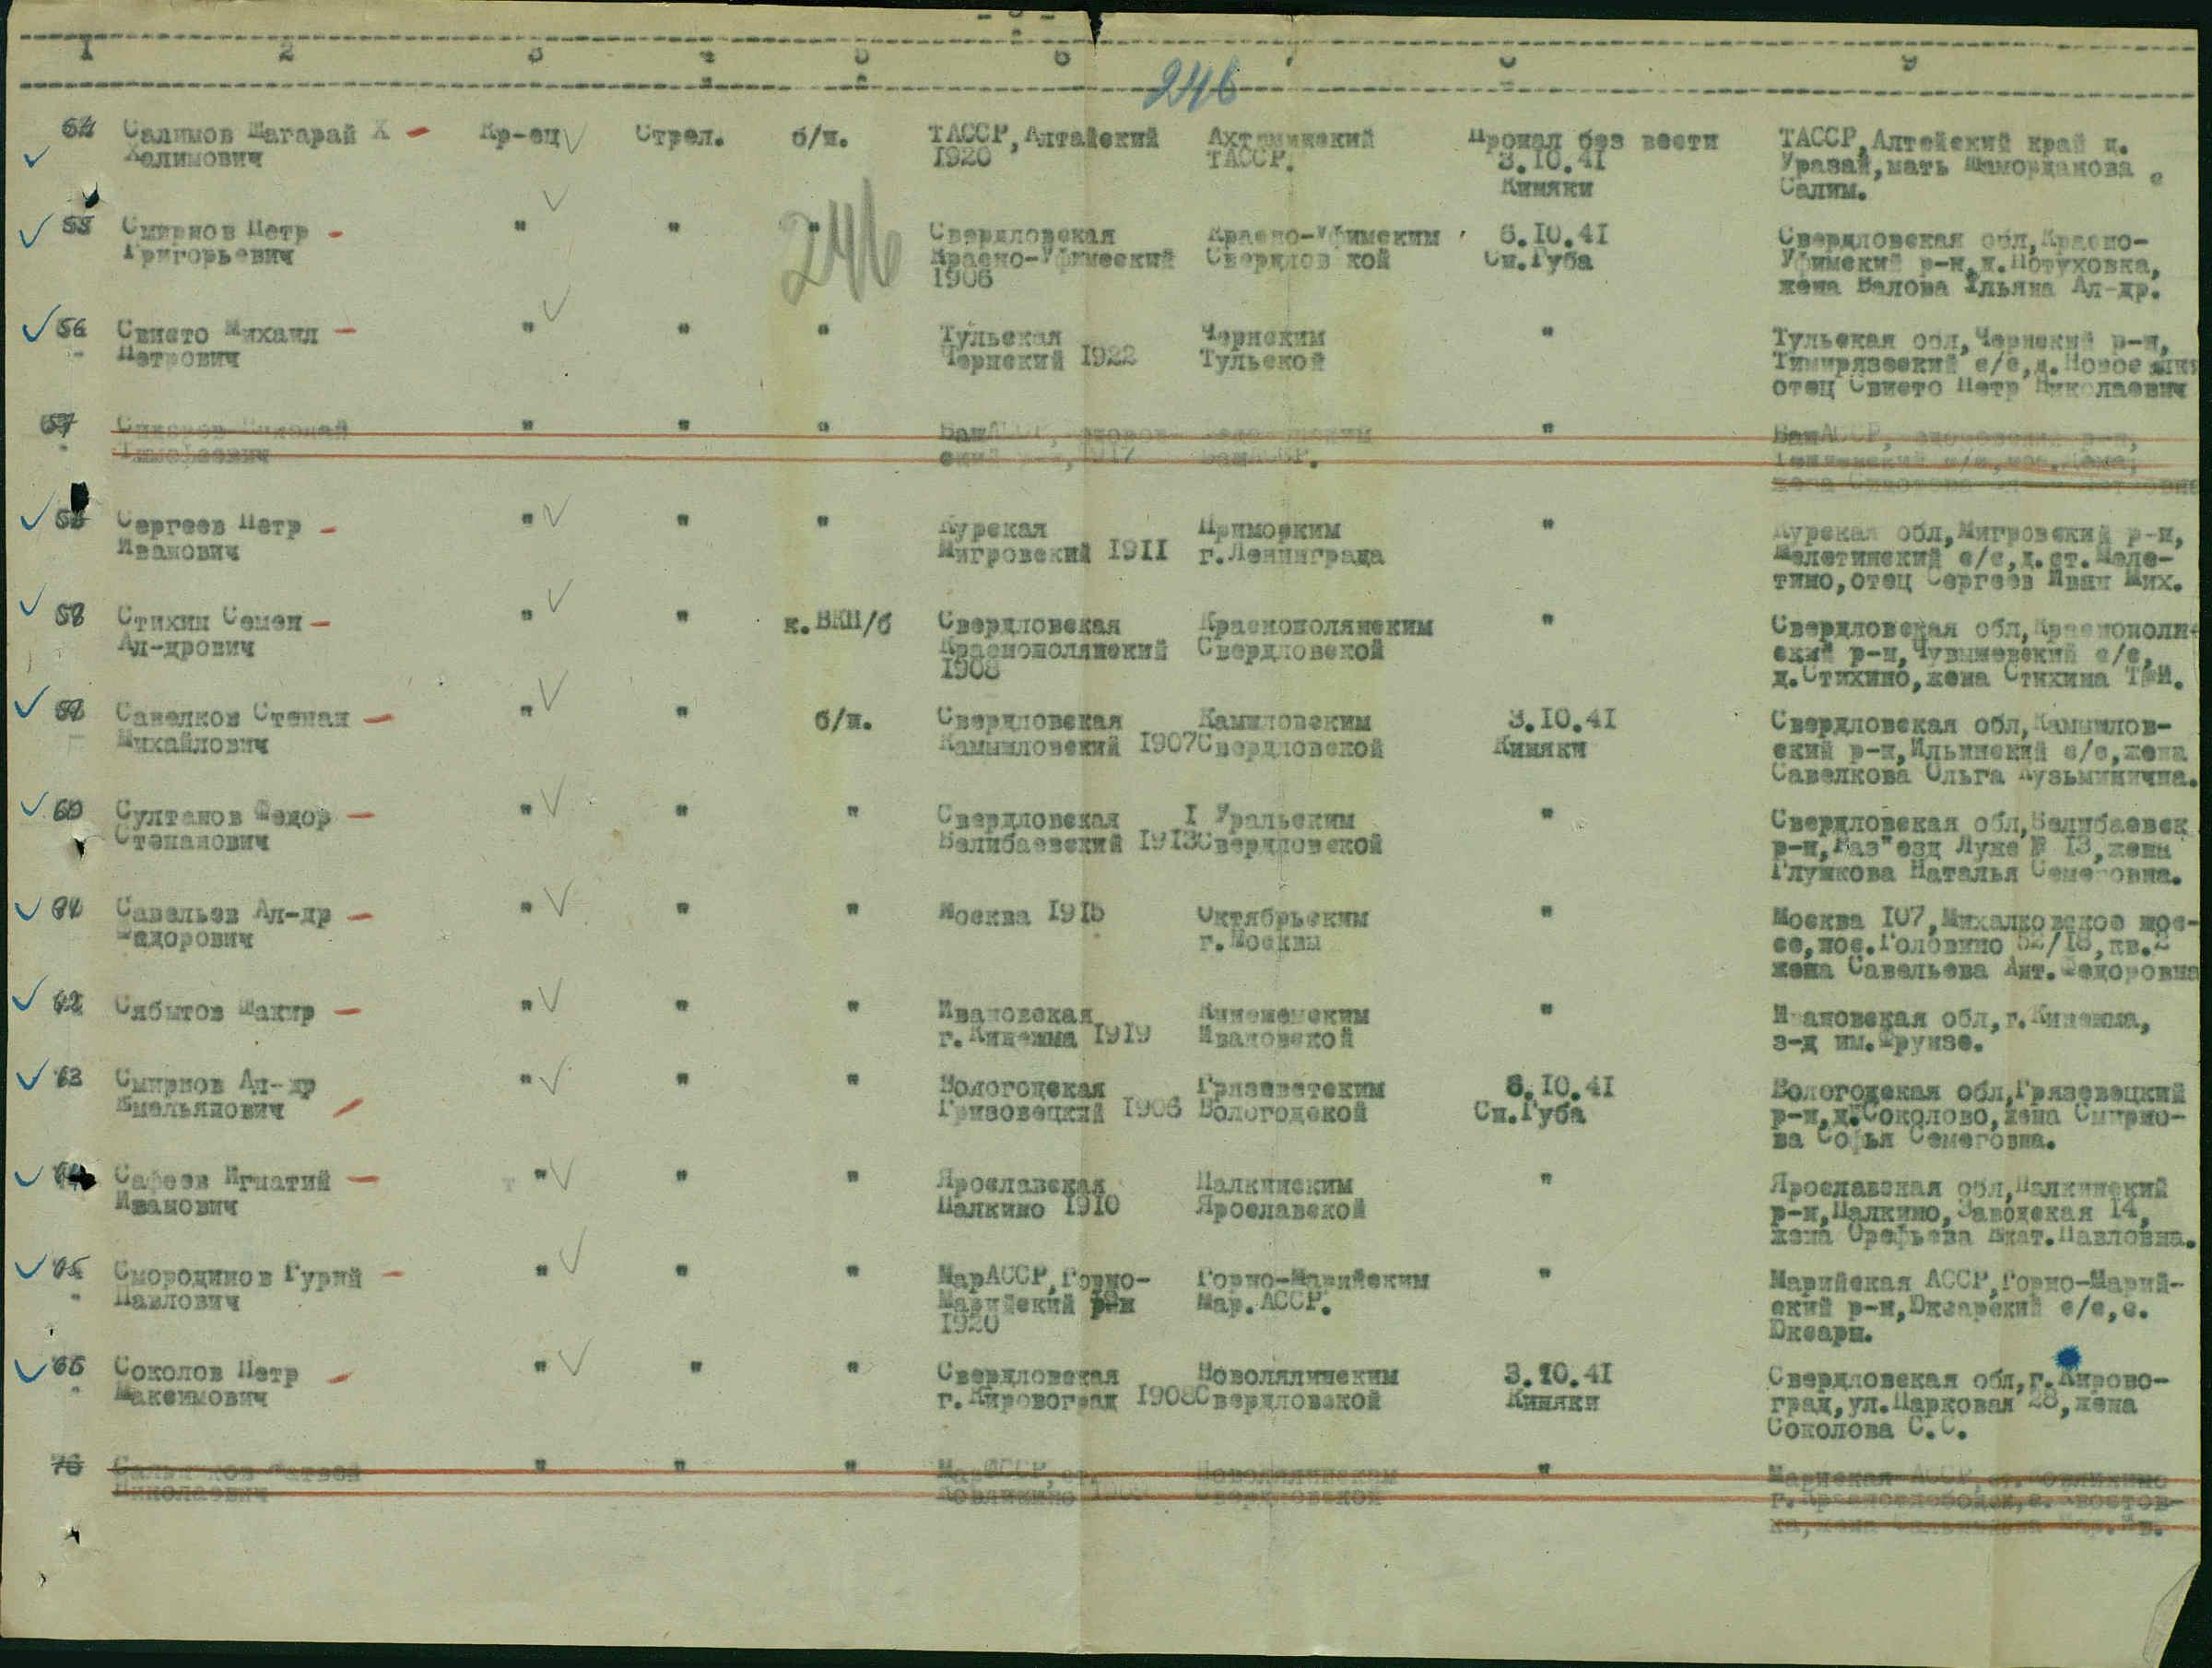 1 2 3 4 5 6 7 8 9
246
54 Салимов Шагарай Х Кр-ец Стрел. б/п. ТАССР, Алтайский Ахтаминский Пропал без вести ТАССР, Алтейский край д.
Халимович 1920 ТАССР. 3.10.41 Уразай, мать Шаморданова
Киняки Салим.
246
55 Смирнов Петр " " " Свердловская Красно-Уфимским 6.10.41 Свердловская обл, Красно-
Григорьевич Красно-Уфимский Свердлов кой Сп.Губа Уфимский р-н, д.Потуховка,
1906 жена Валова Ульяна Ал-др.
56 Свисто Михаил " " " Тульская Чернским " Тульская обл, Чернский р-н,
Петрович Чернский 1922 Тульской Тимирязевский с/с, д.Новое
отец Свисто Петр Николаевич
57 " " " "
58 Сергеев Петр " " " Курская Приморким " Курская обл, Мигровский р-н,
Иванович Мигровский 1911 г.Ленинграда Мелетинский с/с, д.ст.Меле-
тино, отец Сергеев Иван Мих.
58 Стихин Семен " " к.ВКП/б Свердловская Краснополянским " Свердловская обл, Краснополян-
Ал-дрович Краснополянский Свердловской ский р-н, с/с,
1908 д.Стихино, жена Стихина
59 Савелков Степан " " б/п. Свердловская Камиловским 3.10.41 Свердловская обл, Камышлов-
Михайлович Камышловский 1907 Свердловской Киняки ский р-н, Ильинский с/с, жена
Савелкова Ольга Кузьминична.
60 Султанов Федор " " " Свердловская I Уральским " Свердловская обл, Балибаевск
Степанович Балибаевский 1913 Свердловской р-н, Раз"езд Луже № 13, жена
Глушкова Наталья Семеговна.
61 Савельев Ал-др " " " Москва 1915 Октябрьским " Москва 107, Михалковское шос-
Федорович г.Москвы се, пос.Головино 52/18, кв.2
жена Савельева Ант.Федоровна
62 Сябитов Шакир " " " Ивановская Кинешемским " Ивановская обл, г.Кинешма,
г.Кинешма 1919 Ивановской з-д им.Фрунзе.
63 Смирнов Ал-др " " " Вологодская Грязеветским 6.10.41 Вологодская обл, Грязевецкий
Емельянович Грязовецкий 1906 Вологодской Сп.Губа р-н, д.Соколово, жена Смирно-
ва Софья Семеговна.
64 Сафеев Игнатий " " " Ярославская Палкинским " Ярославская обл, Палкинский
Иванович Палкино 1910 Ярославской р-н, Палкино, Заводская 14,
жена Орефьева Екат.Павловна.
65 Смородинов Гурий " " " МарАССР, Горно- Горно-Марийским " Марийская АССР, Горно-Марий-
Павлович Марийский р-н Мар.АССР. ский р-н, Юксарский с/с, с.
1920 Юксары.
66 Соколов Петр " " " Свердловская Новолялинским 3.10.41 Свердловская обл, г.Кирово-
Максимович г.Кировоград 1908 Свердловской Киняки град, ул.Парковая 28, жена
Соколова С.С.
76 " " " "
Николаевич